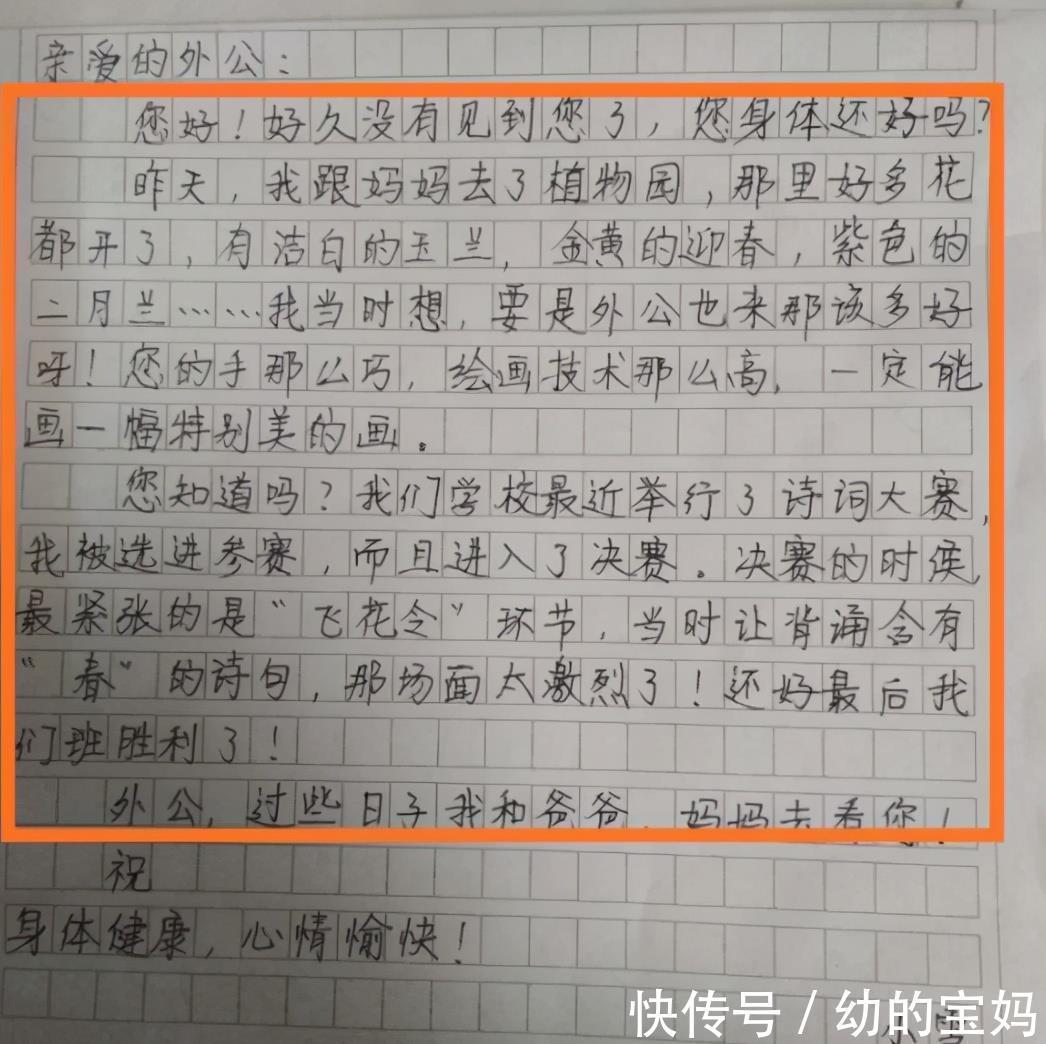 亲爱的外公：
您好！好久没有见到您了，您身体还好吗？
昨天，我跟妈妈去了植物园，那里好多花
都开了，有洁白的玉兰，金黄的迎春，紫色的
二月兰……我当时想，要是外公也来那该多好
呀！您的手那么巧，绘画技术那么高，一定能
画一幅特别美的画。
您知道吗？我们学校最近举行了诗词大赛，
我被选进参赛，而且进入了决赛。决赛的时候，
最紧张的是“飞花令”环节，当时让背诵含有
“春”的诗句，那场面太激烈了！还好最后我
们班胜利了！
外公，过些日子我和爸爸、妈妈去看您！
祝
身体健康，心情愉快！
快传号/幼的宝妈